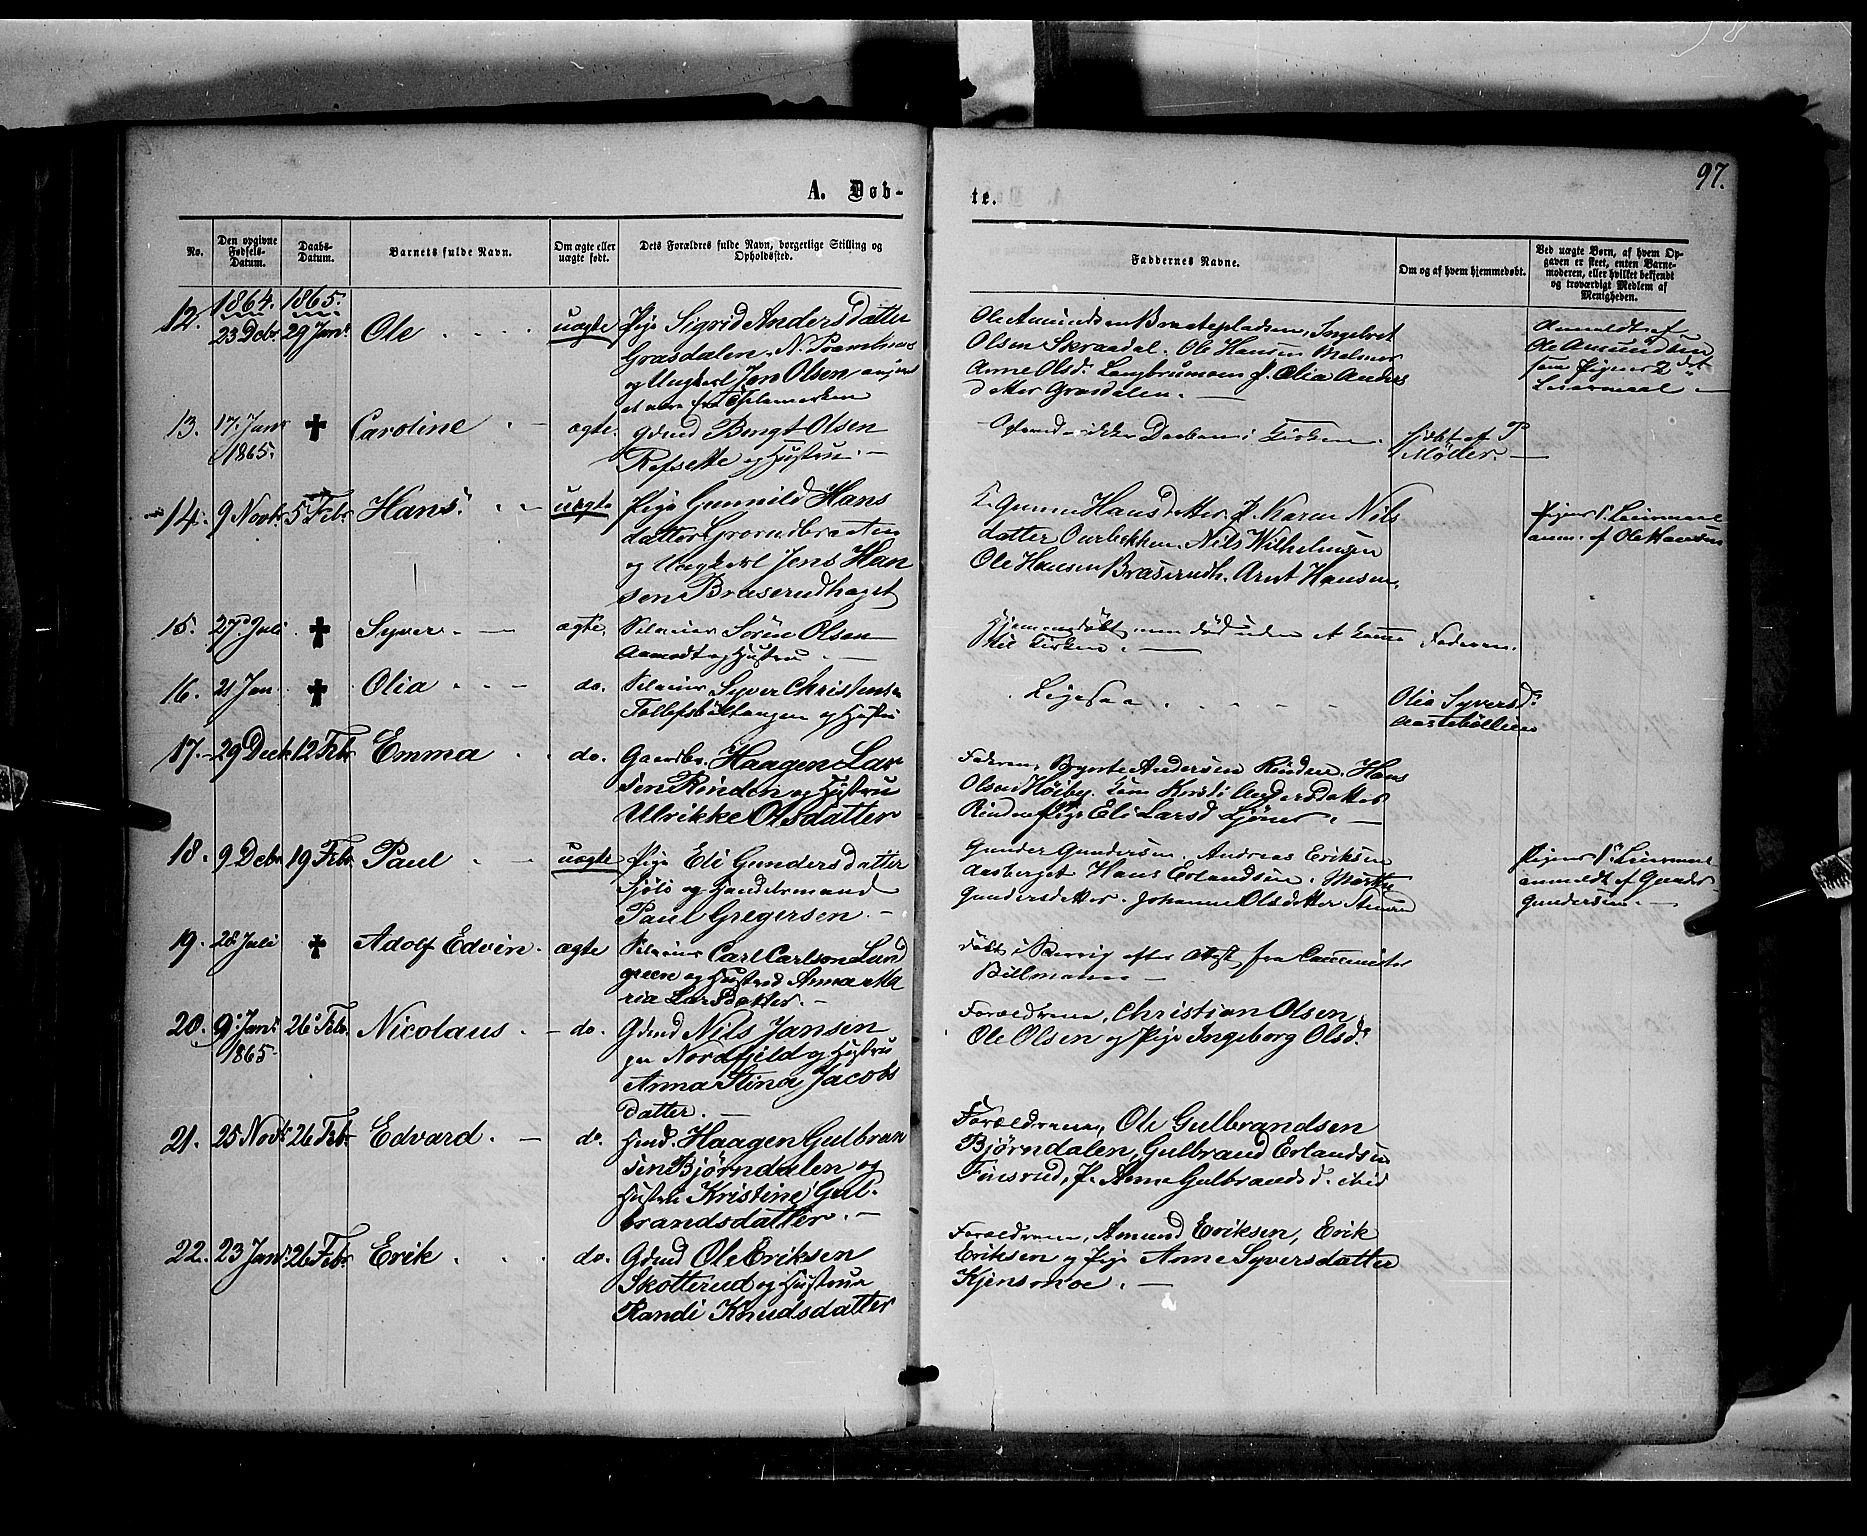 97.
A. Døb-
te.
No.
Den opgivne Fødsels-Datum.
Daabs-Datum.
Barnets fulde Navn.
Om ægte eller uægte født.
Dets Forældres fulde Navn, borgerlige Stilling og Opholdssted.
Faddernes Navne.
Om og af hvem hjemmedøbt.
Ved uægte Børn, af hvem Opgaven er skeet, enten Barnemoderen, eller hvilket bekjendt og troværdigt Medlem af Menigheden.
1864. 1865.
12. 23 Debr. 29 Janr. Ole uægte Pige Sigrid Andersdatter
Grasdalen, N.
og Ungkarl Jon Olsen
et være fra
Ole Amundsen Braatepladsen, Ingebret
Olsen Skraadal. Ole Hansen Malmer
Anne Olsd. Langbrumoen P. Olia Anders
datter Grasdalen.
Anmeldt af
Ole Amundsen
som Pigens 2det
Leiermaal
13. 17. Janr 1865. ✝ Caroline ægte. Gdmd Bengt Olsen
Refsette og Hustru.
ikke Daaben i Kirken.
hjdøbt af P
Møder.
14. 9 Novbr 5 Febr Hans. uægte Pige Gunnild Hans
datter Grorudbraaten
og Ungkarl Jens Han
sen Braserudhaget
K. Gunner Hansdatter P. Karen Nils
datter Ourbekken. Nils Wilhelmsen
Ole Hansen Braserudh. Arnt Hansen.
Pigens 1. Leiermaal
anm. af Ole Hansen
15. 27 Juli ✝ Syver. ægte. Selveier Søren Olsen
Aamodt og Hustru.
Hjemmedøbt men død uden at komme
til Kirken.
Faderen.
16. 21 Jan ✝ Olia do. Selveier Syver Christensen
Tollefsbøltangen og Hustru
Ligesaa
Olia Syversd.
Aastebøllien
17. 29 Decb 12 Febr Emma do. Gaardbr. Haagen Lar
sen Rinden og Hustru
Ulrikke Olsdatter
Faderen, Bernte Andersen Rinden. Hans
Olsen Høiby. Kone Kersti Andersdatter
Rinden Pige Eli Larsd Ljøner.
18. 9 Debr 19 Febr Paul uægte Pige Eli Gundersdatter
Sjøli og Handelsmand
Paul Gregersen.
Gunder Gundersen, Andreas Eriksen
Aasberget Hans Erlandsen. Marthe
Gundersdatter. Johanne Olsdatter
Pigens 1. Leiermaal
anmeldt af Gunder
Gundersen.
19. 28 Juli ✝ Adolf Edvin. ægte Selveier Carl Carlson Lund
green og Hustru Anna Ma
ria Larsdatter.
Døbt i efter Attest fra Comminister
Billmann
20. 9. Janr 1865. 26. Febr. Nicolaus. do. Gdmd Nils Jansen
paa Nordfjeld og Hustru
Anna Stina Jacobs
datter.
Forældrene, Christian Olsen,
Ole Olsen og Pige Ingeborg Olsd.
21. 25 Novbr 26 Febr. Edvard. do. Hmd. Haagen Gulbran
sen Bjørndalen og
Hustru Kristine Gul-
brandsdatter.
Forældrene, Ole Gulbrandsen
Bjørndalen, Gulbrand Erlandsen
Finsrud, P. Anne Gulbrandsd. ibid
22. 23 Janr. 26 Febr Erik do. Gdmd Ole Eriksen
Skotterud og Hustrue
Randi Knudsdatter
Forældrene, Amund Eriksen, Erik
Eriksen og Pige Anne Syversdatter
Kjensmoe.